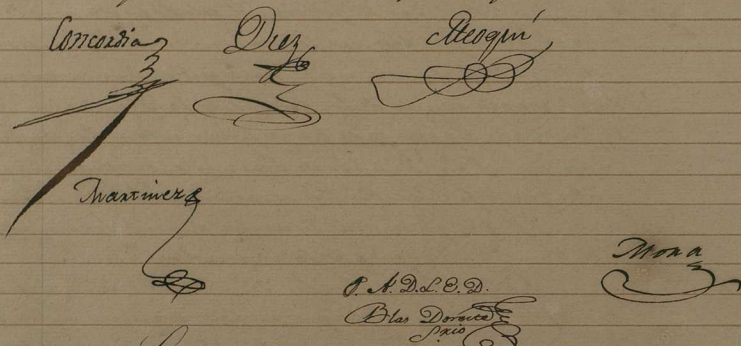 Concordia Diez
Martinez
Mora
P. A. D. L. E. D.
Blas Dorotea
Srio